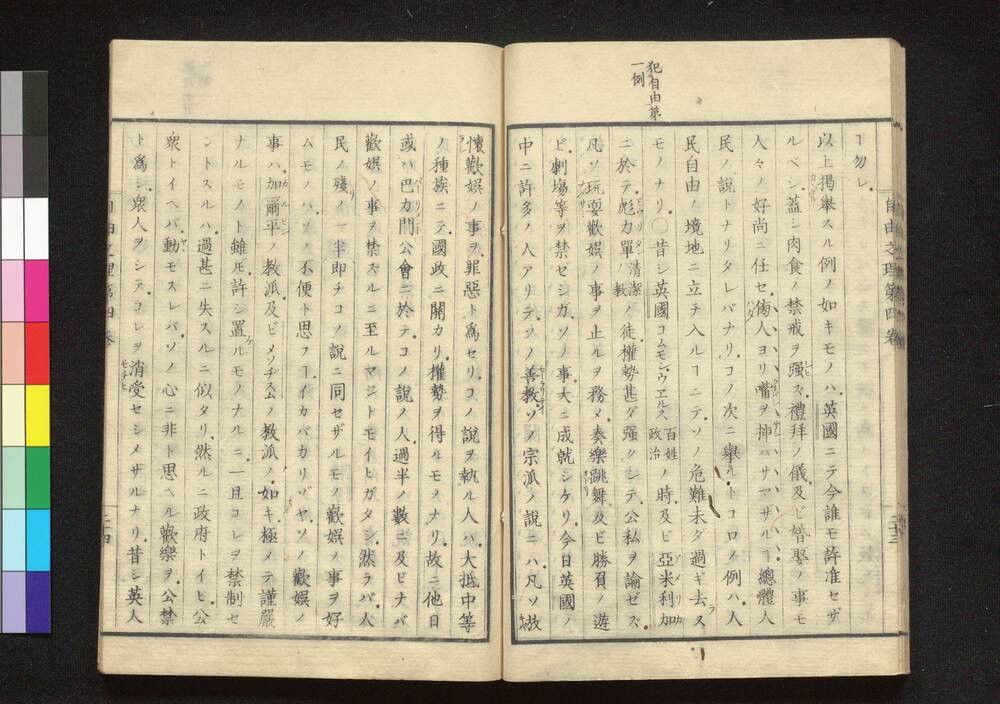 犯自由第
一例
ヿ勿レ。
以上掲擧スル例ノ如キモノハ。英國ニテ今誰モ許准セザ
ルベシ。蓋シ肉食ノ禁戒ヲ强ヒ。禮拜ノ儀及ビ婚娶ノ事モ
人々ノ好尚ニ任セ。傭人ヨリ嘴ヲ挿ハサマザルヿ。總體人
民ノ說トナリタレバナリ。コノ次ニ擧ルトコロノ例ハ。人
民自由ノ境地ニ立チ入ルヿニテ。ソノ危難未ダ過ギ去ラズ
モノナリ。〇昔シ英國コムモンウヱルス百姓政治ノ時。及ビ亞米利加
ニ於テ。彪力單清潔敎ノ徒。權勢甚ダ强クシテ。公私ヲ論ゼズ。
凡ソ玩耍歡娯ノ事ヲ止ルヲ務メ。奏樂跳舞及ビ勝負ノ遊
ビ。劇塲等ヲ禁ゼシガ。ソノ事大ニ成就シケリ。今日英國ノ
中ニ許多ノ人アリテ。ソノ善敎ソノ宗派ノ說ニハ。凡ソ放
懷歡娯ノ事ヲ。罪惡ト爲セリ。コノ說ヲ執ル人ハ。大抵中等
ノ種族ニテ。國政ニ關カリ。權勢ヲ得ルモノナリ。故ニ他日
或ハ巴力門公會ニ於テ。コノ說ノ人。過半ノ數ニ及ビナバ
歡娯ノ事ヲ禁スルニ至ルマジトモイヒガタシ。然ラバ。人
民ノ殘リノ一半即チコノ說ニ同セザルモノ。歡娯ノ事ヲ好
ムモノハ。ソノ不便ト思フヿイカバカリゾヤ。ソノ歡娯ノ
事ハ。加爾平ノ敎派及ビメソヂスムノ敎派ノ如キ。極メテ謹嚴
ナルモノト雖ドモ。許シ置ケルモノナルニ。一旦コレヲ禁制セ
ントスルハ。過甚ニ失スルニ似タリ。然ルニ政府トイヒ。公
衆トイヘバ。動モスレバ。ソノ心ニ非ト思ヘル歡樂ヲ。公禁
ト爲シ。衆人ヲシテ。コレヲ消受セシメザルナリ。昔シ英人
自由之理第四卷
三十三
自由之理第四卷
三十四